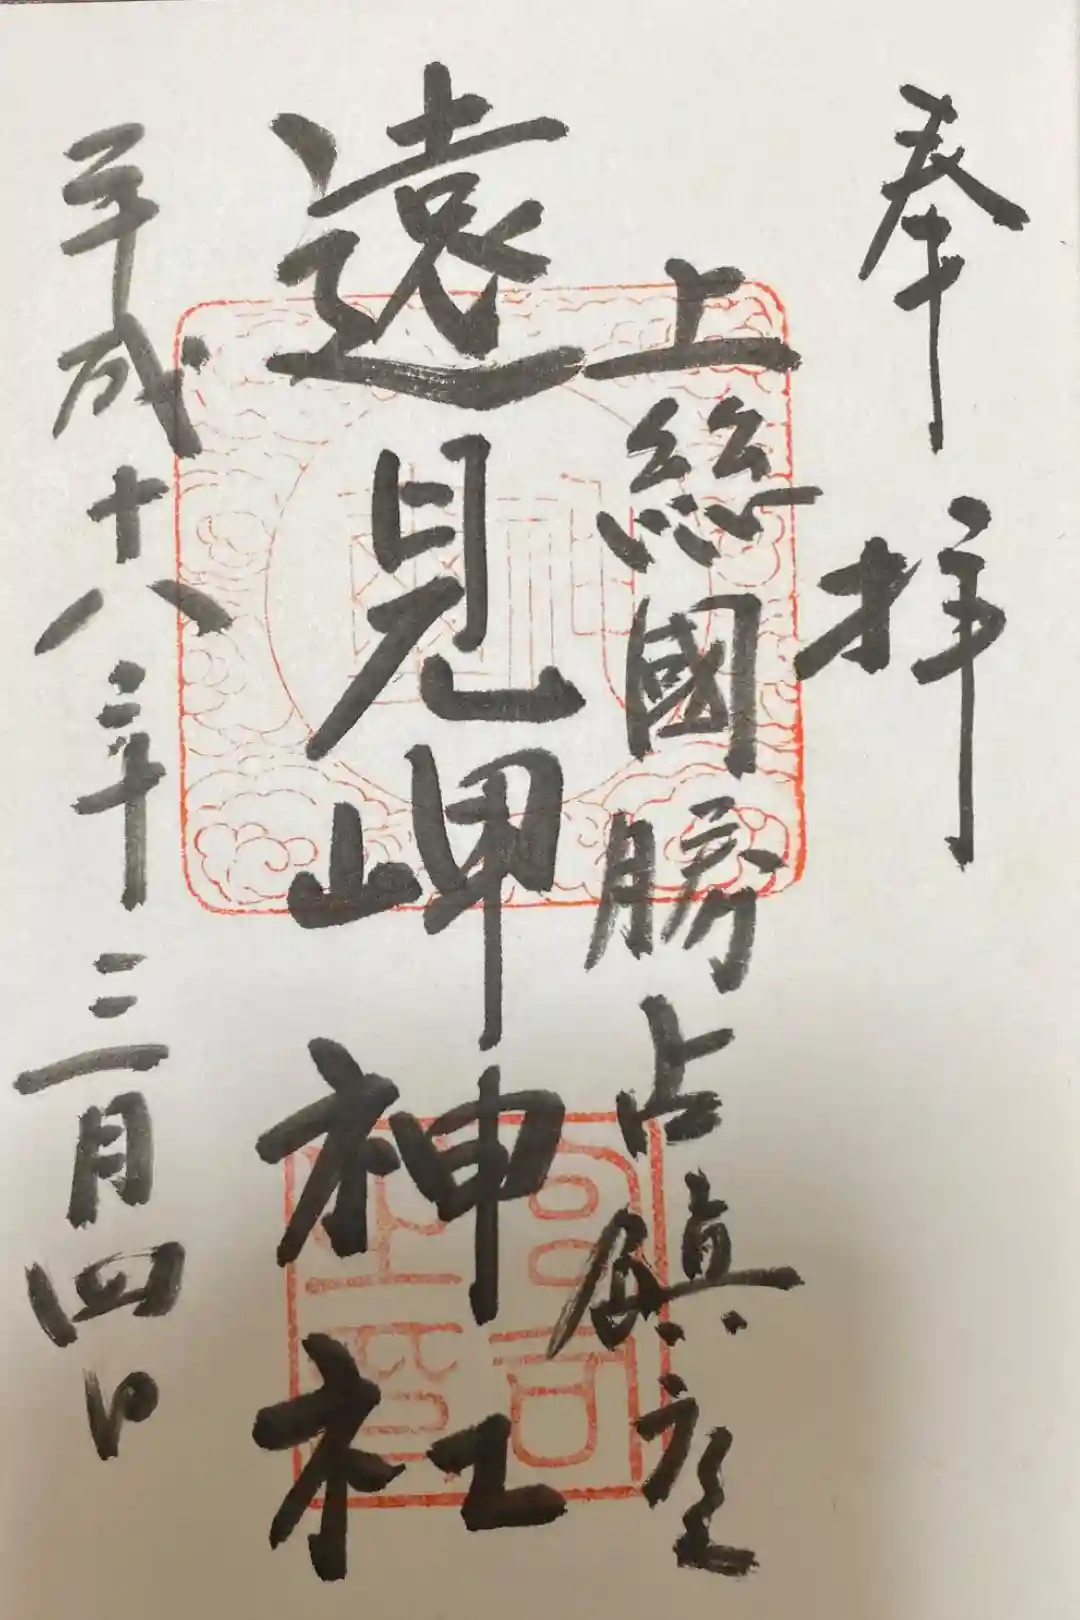 奉拝
上総國勝占鎭座
遠見岬神社
平成十八年三月四日